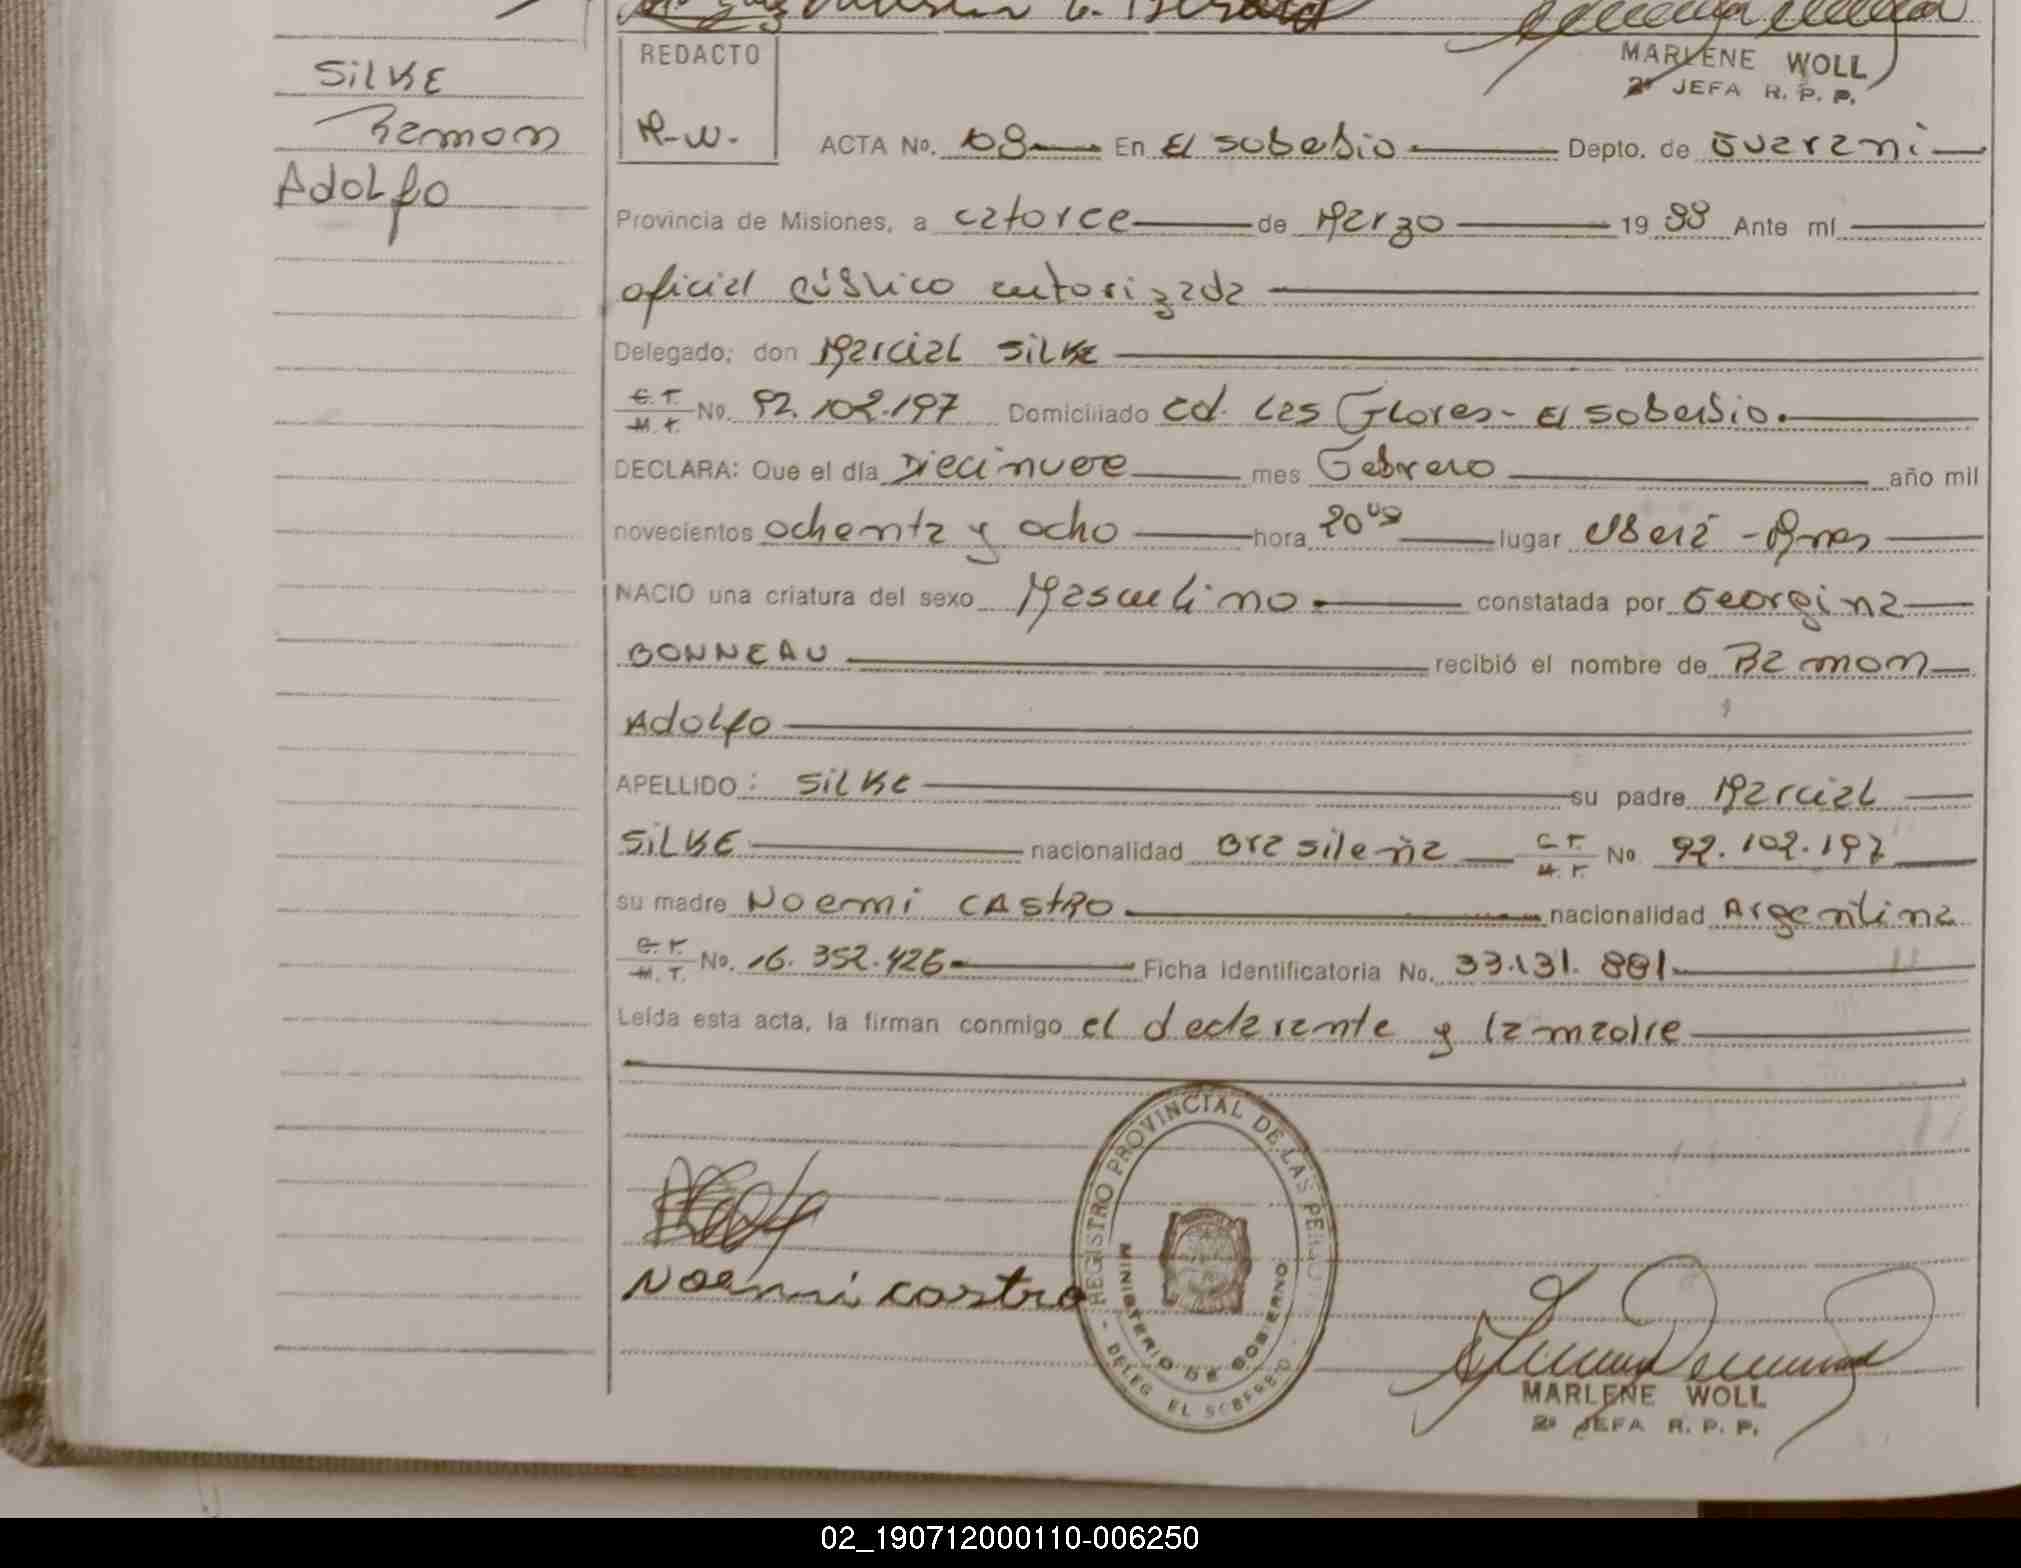 REDACTO
M-W-
MARLENE WOLL
2ª JEFA R. P. P.
SILKE
Ramon
Adolfo
ACTA No. 108 En El Soberbio Depto. de Guarani
Provincia de Misiones, a catorce de Marzo 1988 Ante mí
oficial público autorizada
Delegado; don Marcial SILKE
C. I. M. I. No. 92.102.197 Domiciliado Cd. Las Flores - El Soberbio.
DECLARA: Que el día Diecinueve mes Febrero año mil
novecientos ochenta y ocho hora 20⁰⁰ lugar Oberá - Mnes
NACIO una criatura del sexo Masculino constatada por Georgina
BONNEAU recibió el nombre de Ramon
Adolfo
APELLIDO: SILKE su padre Marcial
SILKE nacionalidad Brasileña C. I. M. I. No 92.102.197
su madre Noemi CASTRO nacionalidad Argentina
C. I. M. I. No. 16.352.426 Ficha Identificatoria No. 33.131.881
Leída esta acta, la firman conmigo el declarante y la madre
Noemi castro
REGISTRO PROVINCIAL DE LAS PERSO
MINISTERIO DE GOBIERNO
DELEG. EL SOBERBIO
MARLENE WOLL
2ª JEFA R. P. P.
02_190712000110-006250